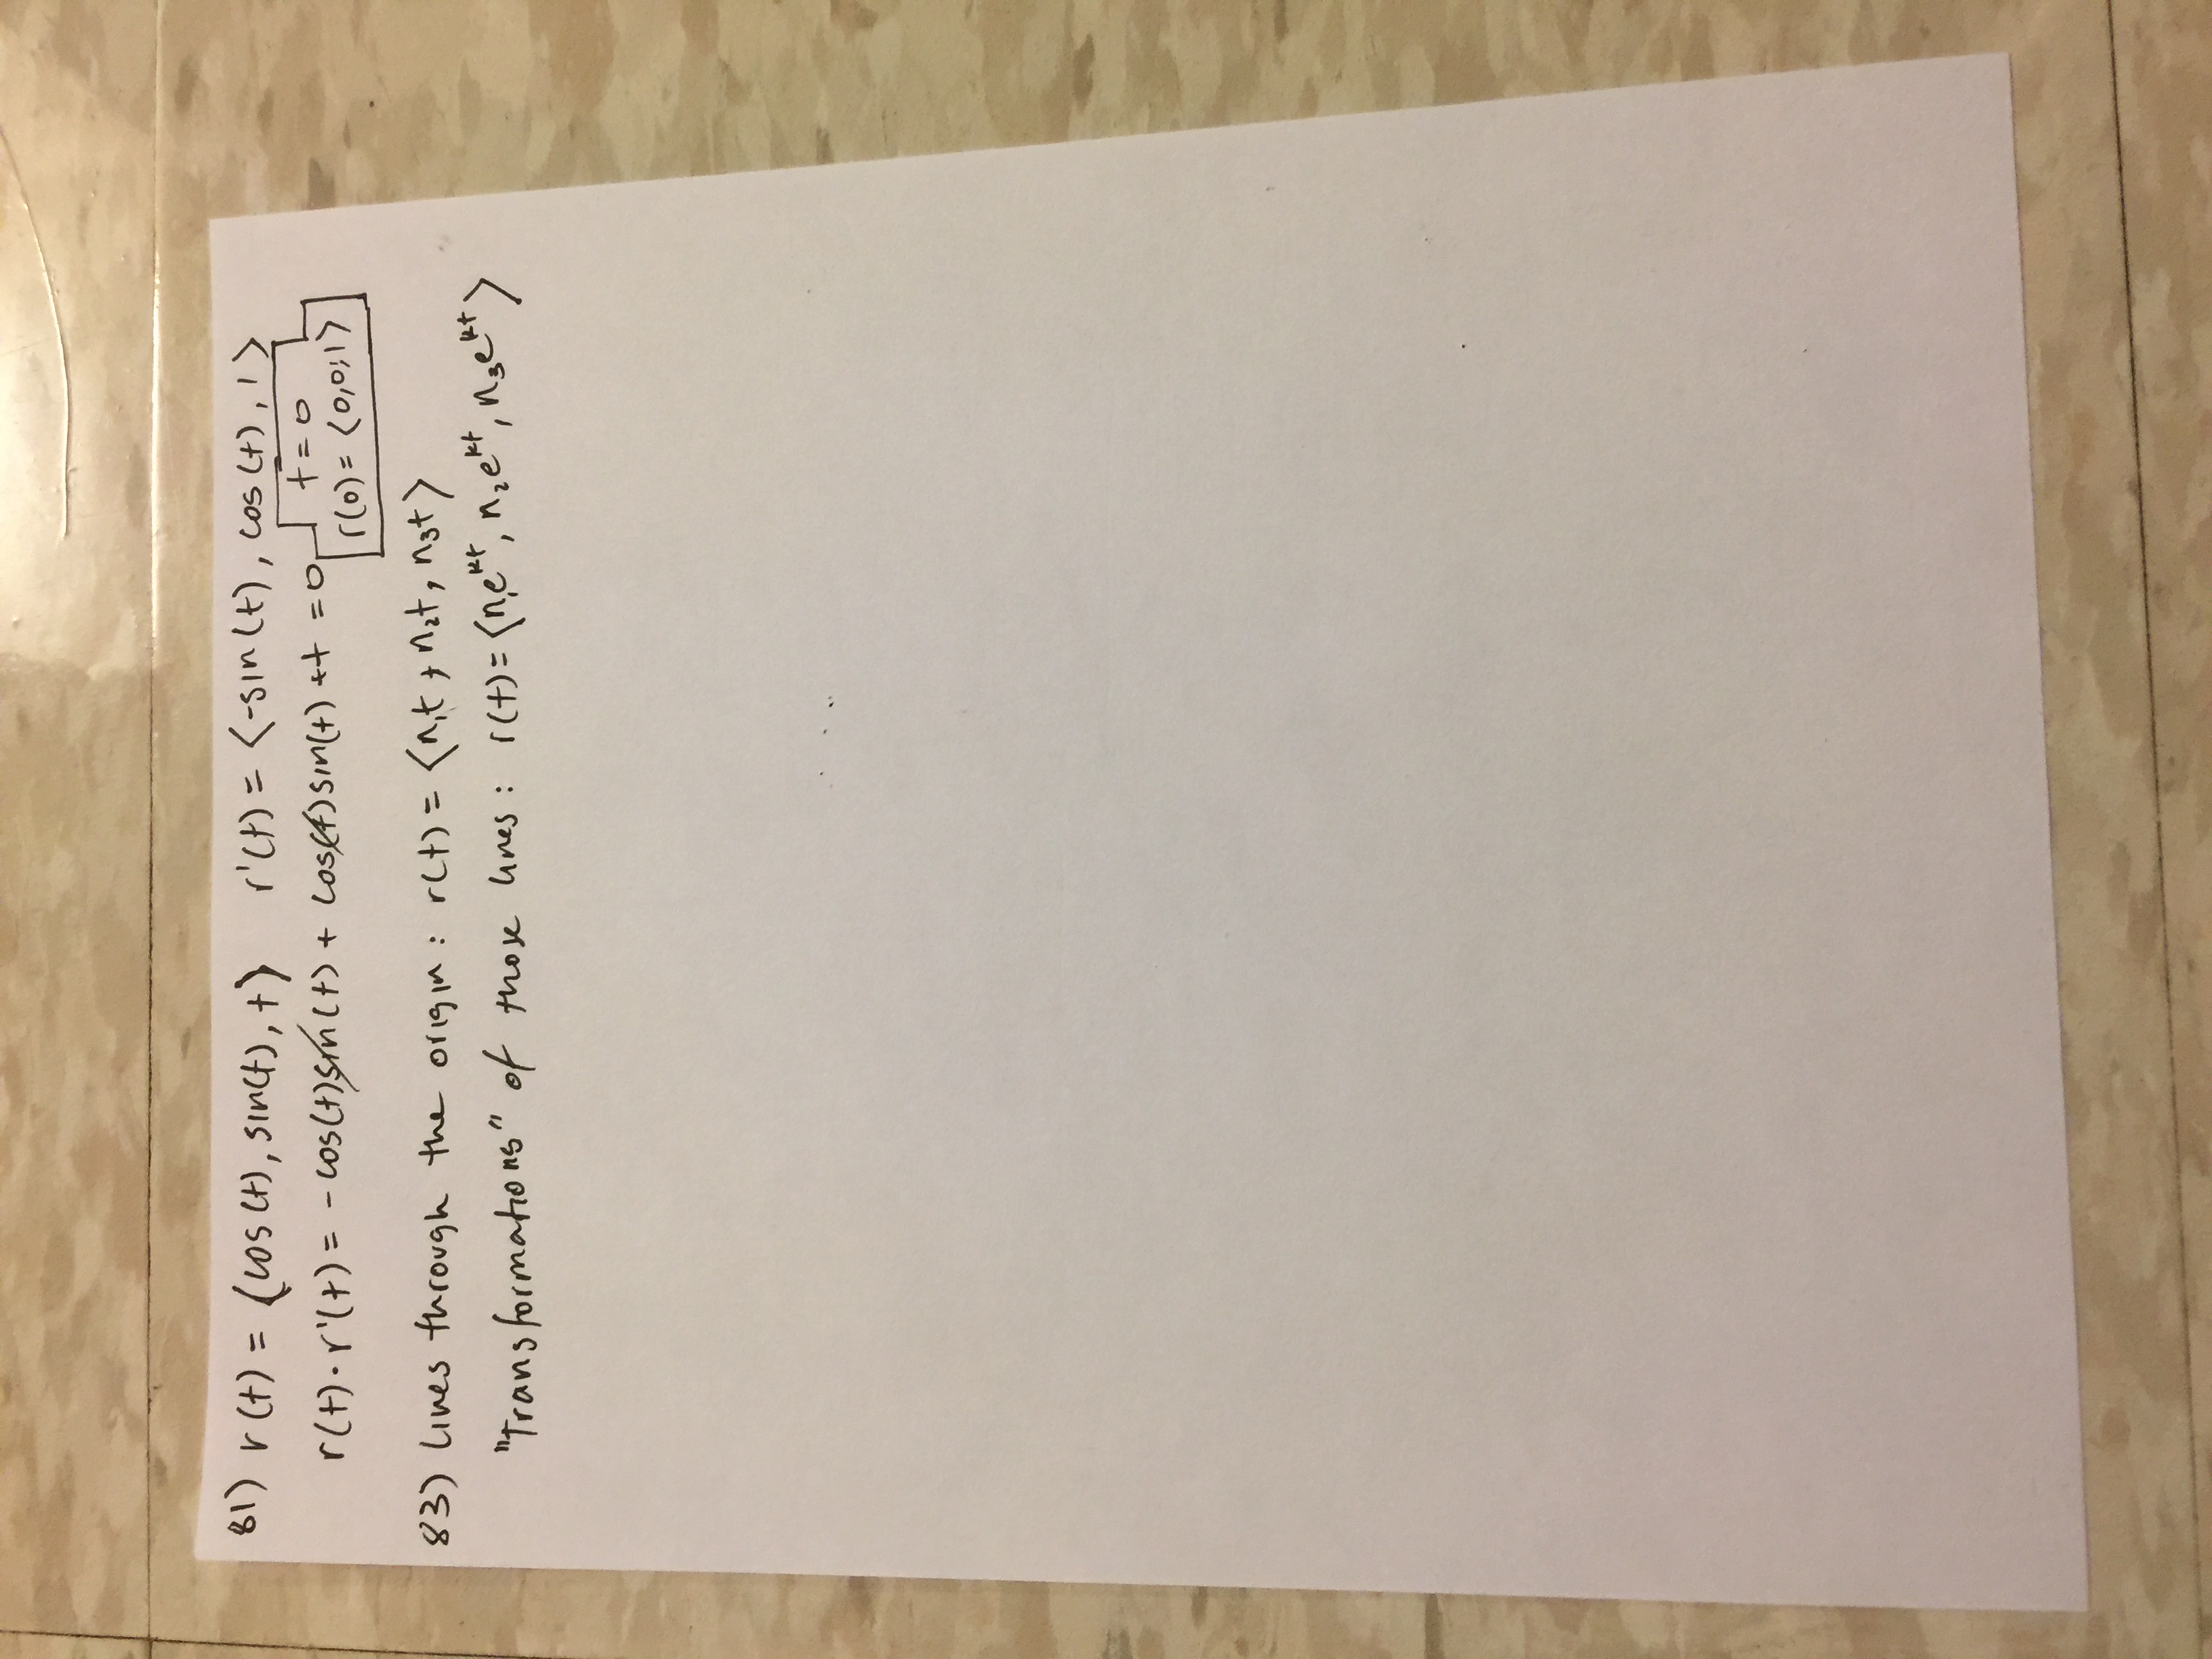 81) r(t) = ⟨cos(t), sin(t), t⟩ r'(t) = ⟨-sin(t), cos(t), 1⟩
r(t)·r'(t) = -cos(t)sin(t) + cos(t)sin(t) + t = 0 t = 0
r(0) = ⟨0,0,1⟩
83) Lines through the origin: r(t) = ⟨n₁t, n₂t, n₃t⟩
"Transformations" of those lines: r(t) = ⟨n₁e^kt, n₂e^kt, n₃e^kt⟩